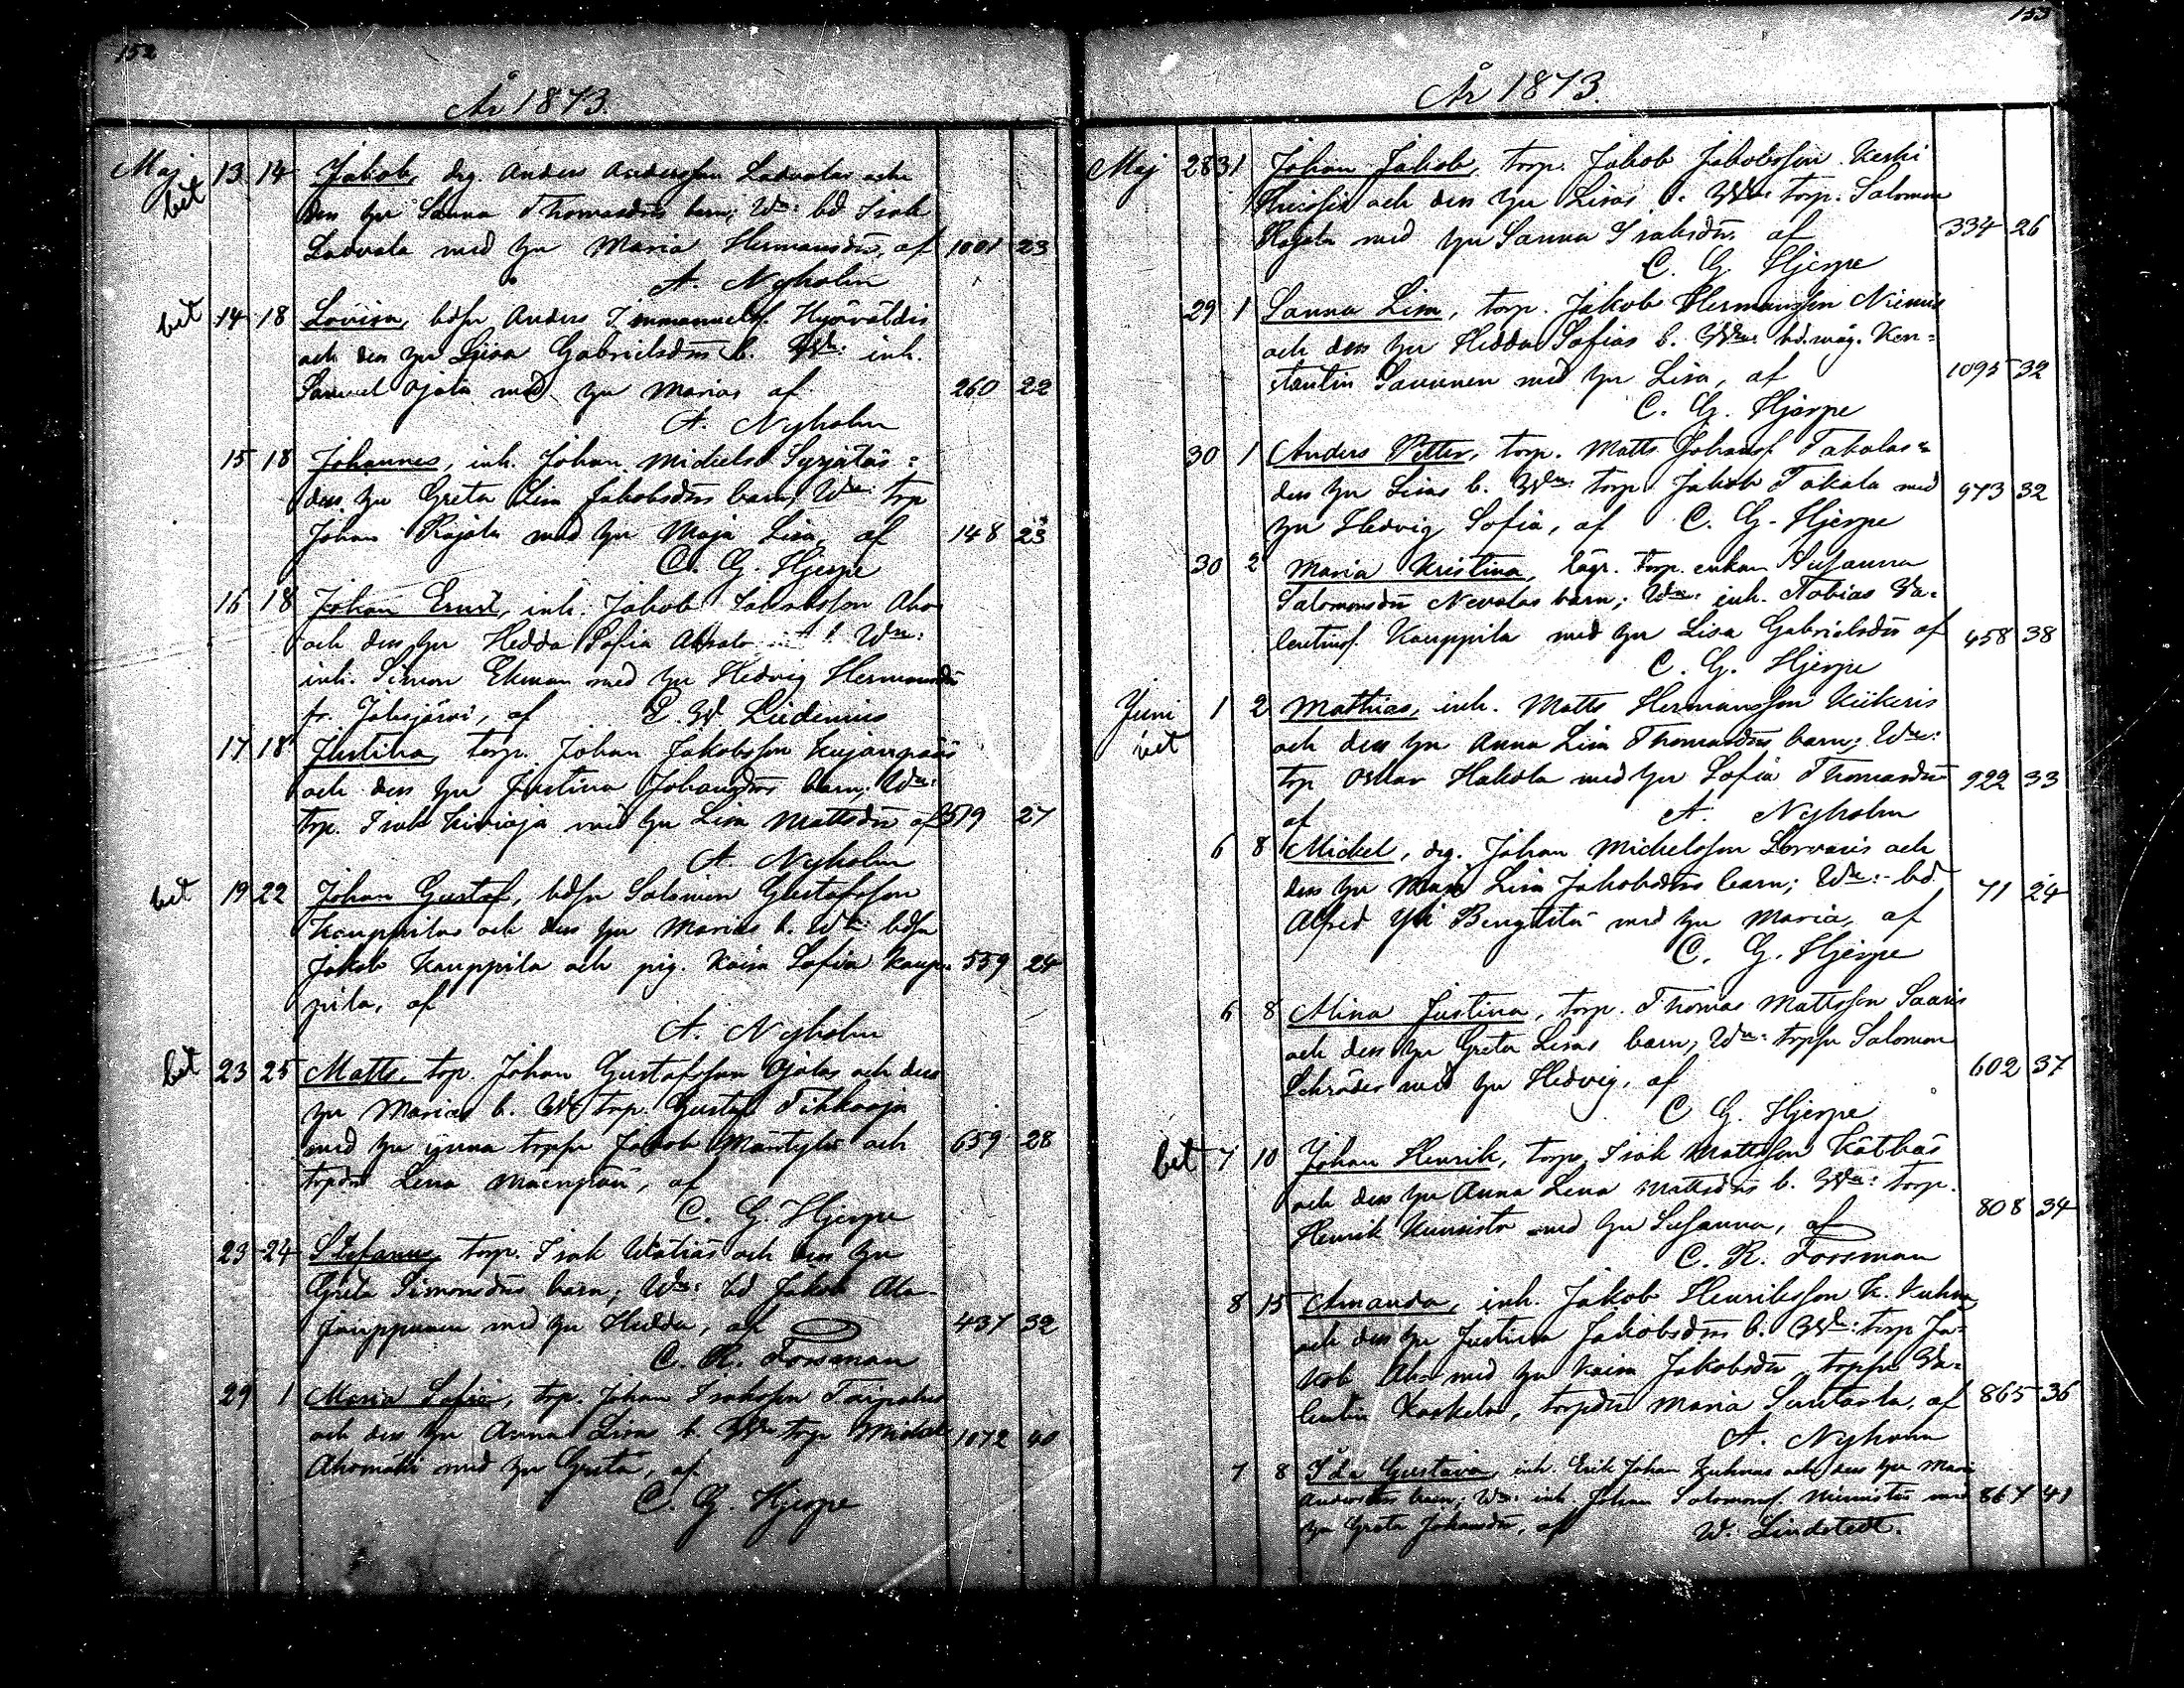 152
År 1873.
Maj 13 14 Jakob, drg. Anders Andersson Ladvalas och
bet den hu Sanna Thomasdrs barn; Wn: bd Isak
Ladvala med hu Maria Hermansdr, af 1001 23
A. Nyholm
bet 14 18 Lovisa, bdsn Anders Immanuelsf. Hyöväldis
och den hu Lisa Gabrielsdrs b. Wn: inh.
Samuel Ojala med hu Maria af 260 22
A. Nyholm
15 18 Johannes, inh. Johan Mickels
den hu Greta Lisa Jakobsdrs barn; Wn: trp
Johan Rajala med hu Maja Lisa, af 148 23
C. G. Hjerpe
16 18 Johan Ernst, inh. Jakob Jakobsson Aho
och den hu Hedda Sofia Wn:
inh. Simon Ekman med hu Hedvig Hermansdr
fr. Jalasjärvi, af Liedenius
17 18 Justina torp. Johan Jakobsson Kujanpääs
och den hu Justina Johansdrs barn; Wn:
trp. Isak med hu Lisa Mattsdr af 519 27
A. Nyholm
bet 19 22 Johan Gustaf, bdsn Salomon Gustafsson
Kauppilas och den hu Marias b. Wn: bdsn
Jakob Kauppila och pig. Kaisa Sofia Kaup= 559 24
pila, af
A. Nyholm
bet 23 25 Matts, trp. Johan Gustafsson Ojalas och den
hu Marias b. Wn: trp. Gustaf
med hu Jakob Mäntylä och 659 28
trpdr Lena Mäenpää, af
C. G. Hjerpe
23 24 Stefanus torp. Isak och den hu
Greta Simonsdrs barn; Wn: bd Jakob Ala-
Jouppunen med hu Hulda, af 437 32
C. R. Forsman
29 1 Maria Sofia, trp. Johan Isaksson Taipalus
och den hu Anna Lisas b. Wn: Mickel 1072 40
Ahomäki med hu Greta, af
C. G. Hjerpe
153
År 1873.
Maj 28 31 Johan Jakob, torp. Jakob Jakobsson Keski
och den hu Lisas b. Wn: torp. Salomon
Rajala med hu Sanna Isaksdr, af 334 26
C. G. Hjerpe
29 1 Sanna Lisa, torp. Jakob Hermansson Niemis
och den hu Hedda Sofias b. Wn: bd.måg. Kon=
stantin Savunen med hu Lisa, af 1095 32
C. G. Hjerpe
30 1 Anders Petter, torp. Matts Johansf. Takalas
den hu Lisas b. Wn: torp. Jakob Takala med 973 32
hu Hedvig Sofia, af C. G. Hjerpe
30 2 Maria Kristina, lägr. torp. enkan Susanna
Salomonsdr Nevalas barn; Wn: inh. Tobias Va=
lentinsf. Kauppila med hu Lisa Gabrielsdr af 458 38
C. G. Hjerpe
Juni 1 2 Mathias, inh. Matts Hermansson Kiikeris
bet och den hu Anna Lisa Thomasdrs barn; Wn:
trp Oskar Hakola med hu Sofia Thomasdr 922 33
af A. Nyholm
6 8 Mickel, drg. Johan Mickelsson Lorvaris och
den hu Maja Lisa Jakobsdrs barn; Wn: bd 71 24
Alfred Yli Bengtilä med hu Maria, af
C. G. Hjerpe
6 8 Alina Justina, torp. Thomas Mattsson Saaris
och den hu Greta Lisas barn; Wn: trpsn Salomon
Schröder med hu Hedvig, af 602 37
C. G. Hjerpe
bet 7 10 Johan Henrik, torp. Isak Mattsson Kätkäs
och den hu Anna Lena Mattsdrs b. Wn: torp.
Henrik Kunsisto med hu Susanna, af 808 34
C. R. Forsman
8 15 Amanda, inh. Jakob Henriksson K. Kuhna
och den hu Justina Jakobsdrs b. Wn: torp Ja=
kob Aho med hu Kaisa Jakobsdr, trpsn Va=
lentin Koskela, torpdr Maria Luntasla, af 865 36
A. Nyholm
7 8 Ida Gustava, inh. Erik Johan Kuhnas och den hu Maria
Andersdrs barn; Wn: inh. Johan Salomonsf. Niinistö med 867 41
hu Greta Johansdr, af W. Lindstedt.